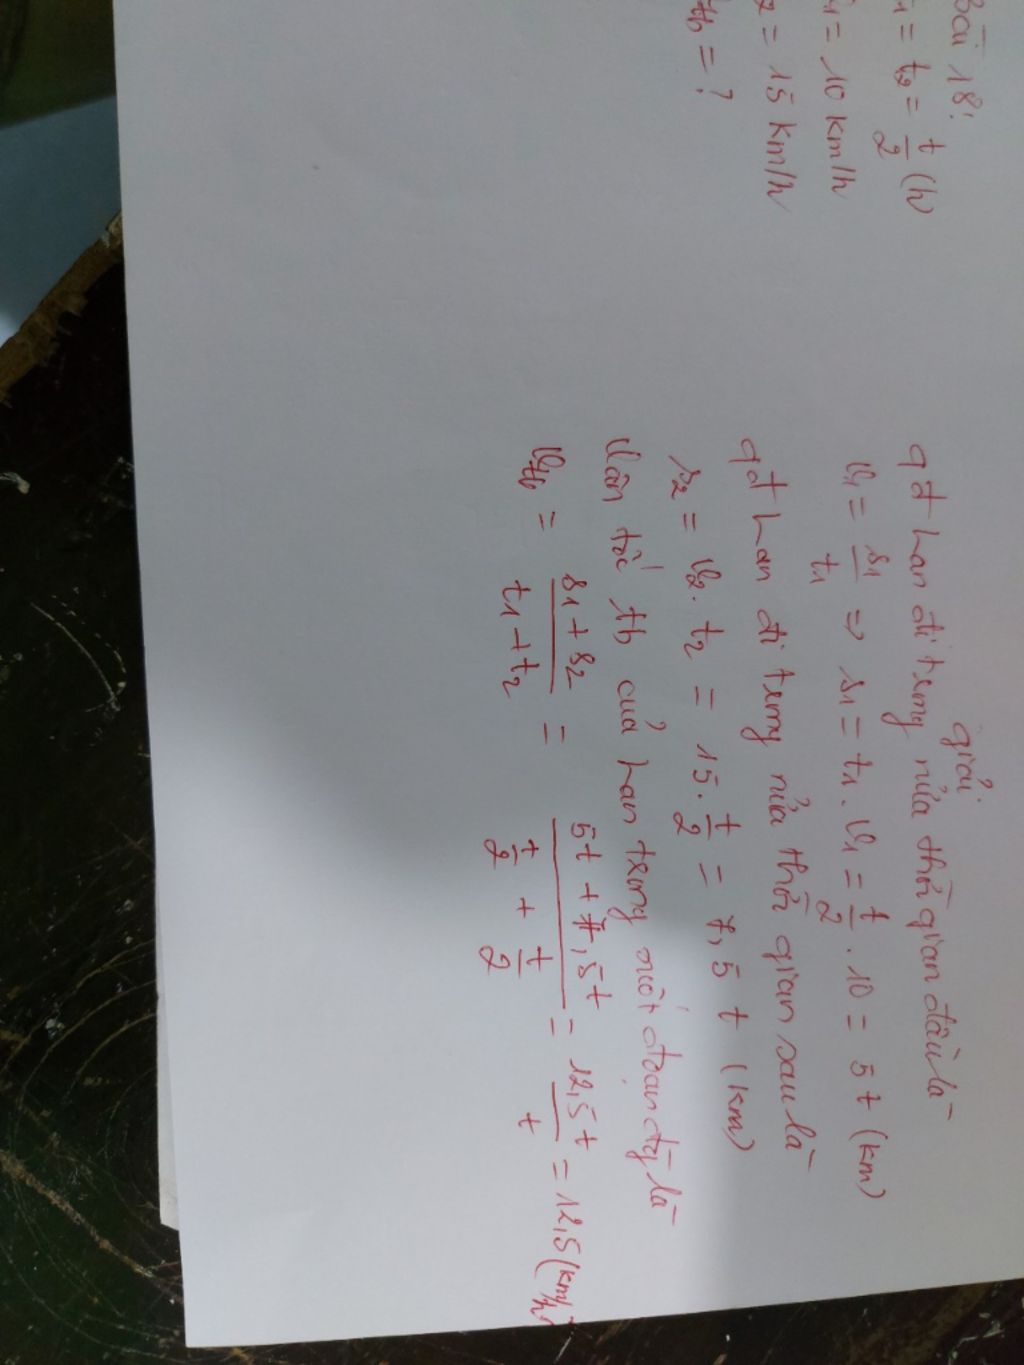 Bài 18:
t1 = t2 = t/2 (h)
v1 = 10 km/h
= 15 km/h
tb = ?
giải
qđ Lan đi trong nửa thời gian đầu là
v1 = s1/t1 => s1 = t1 . v1 = t/2 . 10 = 5t (km)
qđ Lan đi trong nửa thời gian sau là
s2 = v2 . t2 = 15 . t/2 = 7,5 t (km)
Vận tốc tb của Lan trong suốt đoạn đg là
vtb = (s1 + s2)/(t1 + t2) = (5t + 7,5t)/(t/2 + t/2) = 12,5t/t = 12,5 (km/h